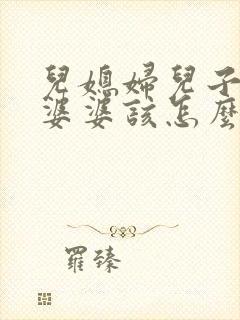 兒媳婦兒子
婆婆該怎麼
羅臻